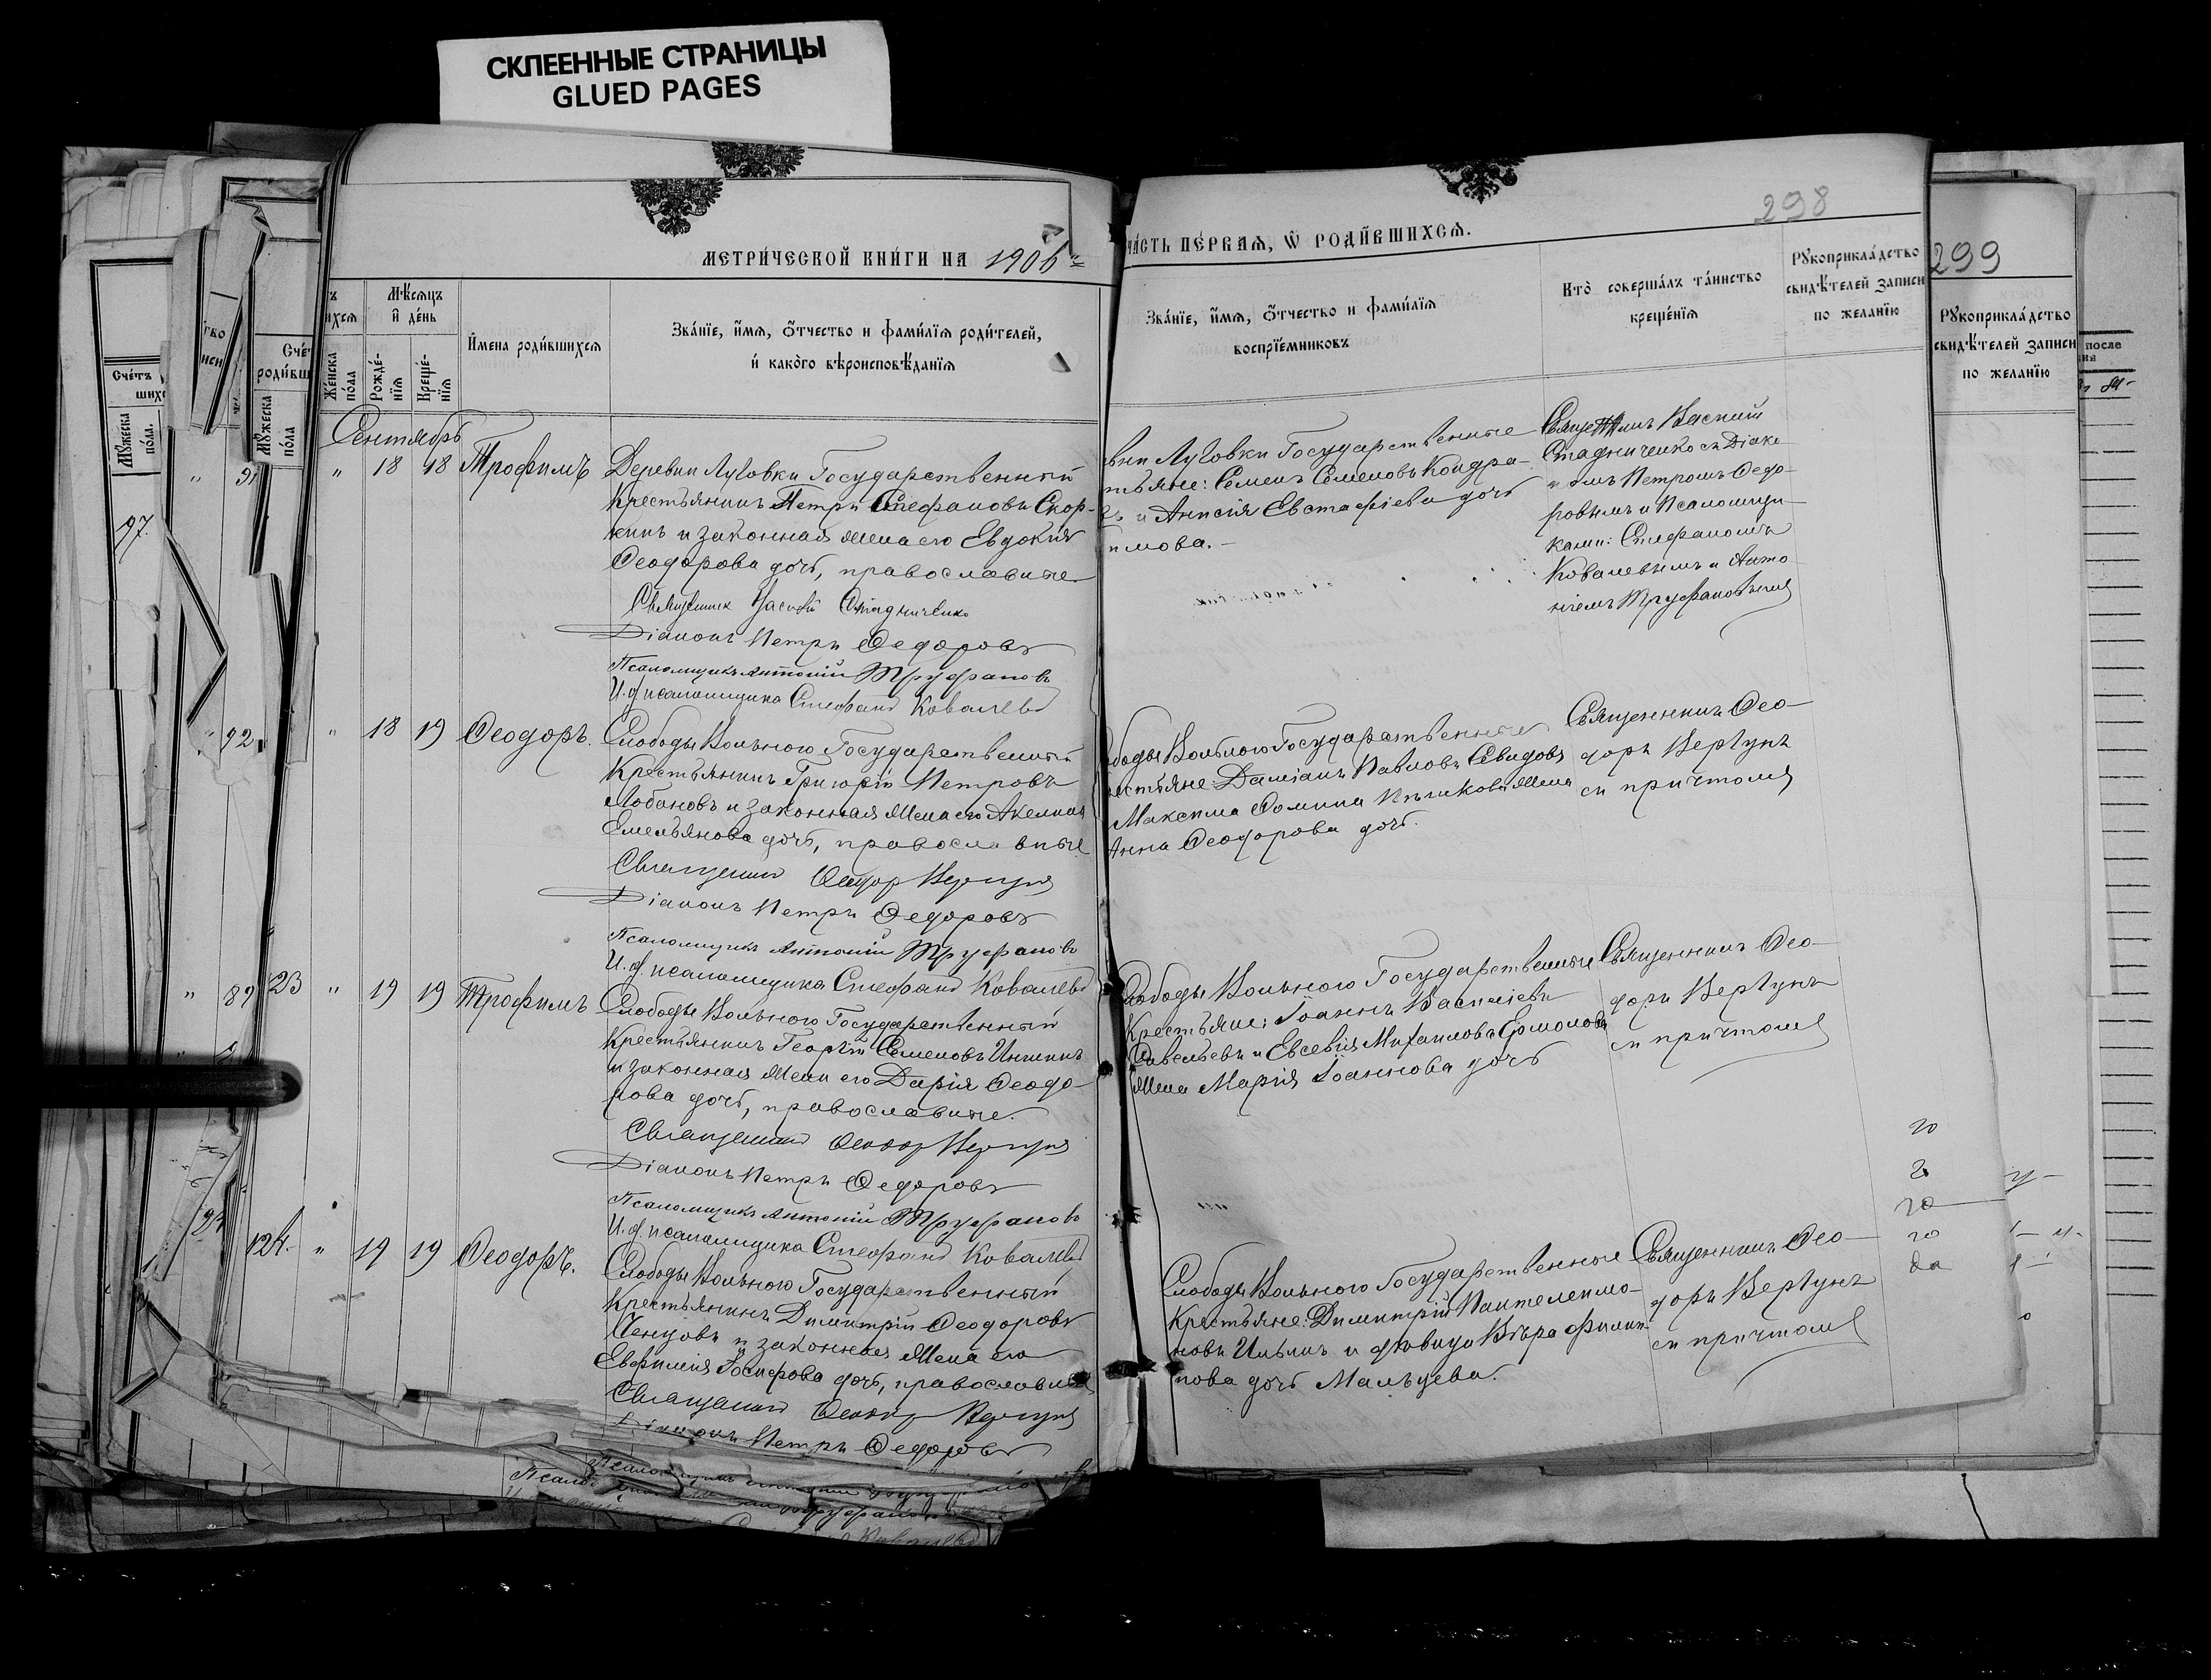 СКЛЕЕННЫЕ СТРАНИЦЫ
GLUED PAGES
298
299
МЕТРИ́ЧЕСКОЙ КНИ́ГИ НА 1906
ЧА́СТЬ ПЕ́РВАѦ, Ѡ҆ РОДИ́ВШИХСѦ.
Мѣ́сѧцъ
и҆ де́нь
И҆мена роди́вшихсѧ
Зва́нїе, и҆́мѧ, ѻ҆́тчество и фами́лїѧ роди́телей,
и҆ како́го вѣроисповѣ́данїѧ
Же́нска по́ла
Рожде́нїѧ
Креще́нїѧ
Зва́нїе, и҆́мѧ, ѻ҆́тчество и фами́лїѧ
воспрїе́мниковъ
Кто̀ соверша́лъ та́инство
креще́нїѧ
Рꙋкоприкла́дство
свидѣ́телей записи
по жела́нїю
Рꙋкоприкла́дство
свидѣ́телей записи
по жела́нїю
Сче́тъ
Мꙋжеска по́ла.
Мꙋжеска по́ла
после
97.
Сентябрь
" 18 18 Трофимъ
Деревни Луговки Государственный
Крестьянинъ Петръ Стефановъ Скор-
кинъ и законная жена его Евдокия
Феодорова дочь, православные
Священник Василий Стадниченко
Діаконъ Петръ Федоровъ
Псаломщикъ Антоній Труфановъ
И. д. псаломщика Стефанъ Ковалевъ
Луговки Государственные
Семенъ Семеновъ Кондра-
и Анисія Евстафіева дочь
Священникъ Василий
Стадниченко съ Діако-
номъ Петромъ Федо-
ровымъ и Псаломщи-
ками: Стефаномъ
Ковалевымъ и Анто-
ніемъ Труфановымъ
92
" 18 19 Феодоръ.
Слободы Вольного Государственный
Крестьянинъ Григорій Петровъ
Лобановъ и законная жена его Акелина
Емельянова дочь, православные
Священникъ Феодоръ Вергунъ
Діаконъ Петръ Федоровъ
Псаломщикъ Антоній Труфановъ
И. д. псаломщика Стефанъ Ковалевъ
Вольного Государственные
Даміанъ Павловъ Свидовъ
Максима Фомина жена
Анна Феодорова дочь.
Священникъ Фео-
доръ Вергунъ
съ причтомъ
89
23 " 19 19 Трофимъ
Слободы Вольного Государственный
Крестьянинъ Георгій Семеновъ Иншинъ
и законная жена его Дарія Феодо-
рова дочь, православные.
Священникъ Феодоръ Вергунъ
Діаконъ Петръ Федоровъ
Псаломщикъ Антоній Труфановъ
И. д. псаломщика Стефанъ Ковалевъ
Слободы Вольного Государственные
Крестьяне: Іоаннъ Васильевъ
Савельевъ и Евсевія Михаилова Ермолова
жена Марія Іоаннова дочь
Священникъ Фео-
доръ Вергунъ
съ причтомъ
124. " 19 19 Феодоръ.
Слободы Вольного Государственный
Крестьянинъ Димитрій Феодоровъ
Ченцовъ и законная жена его
Евфимія Іосифова дочь, православные
Священникъ Феодоръ Вергунъ
Діаконъ Петръ Федоровъ
Слободы Вольного Государственные
Крестьяне: Димитрій Пантелеимо-
новъ Ильинъ и дѣвица Вѣра Филип-
пова дочь Мальцева.
Священникъ Фео-
доръ Вергунъ
съ причтомъ